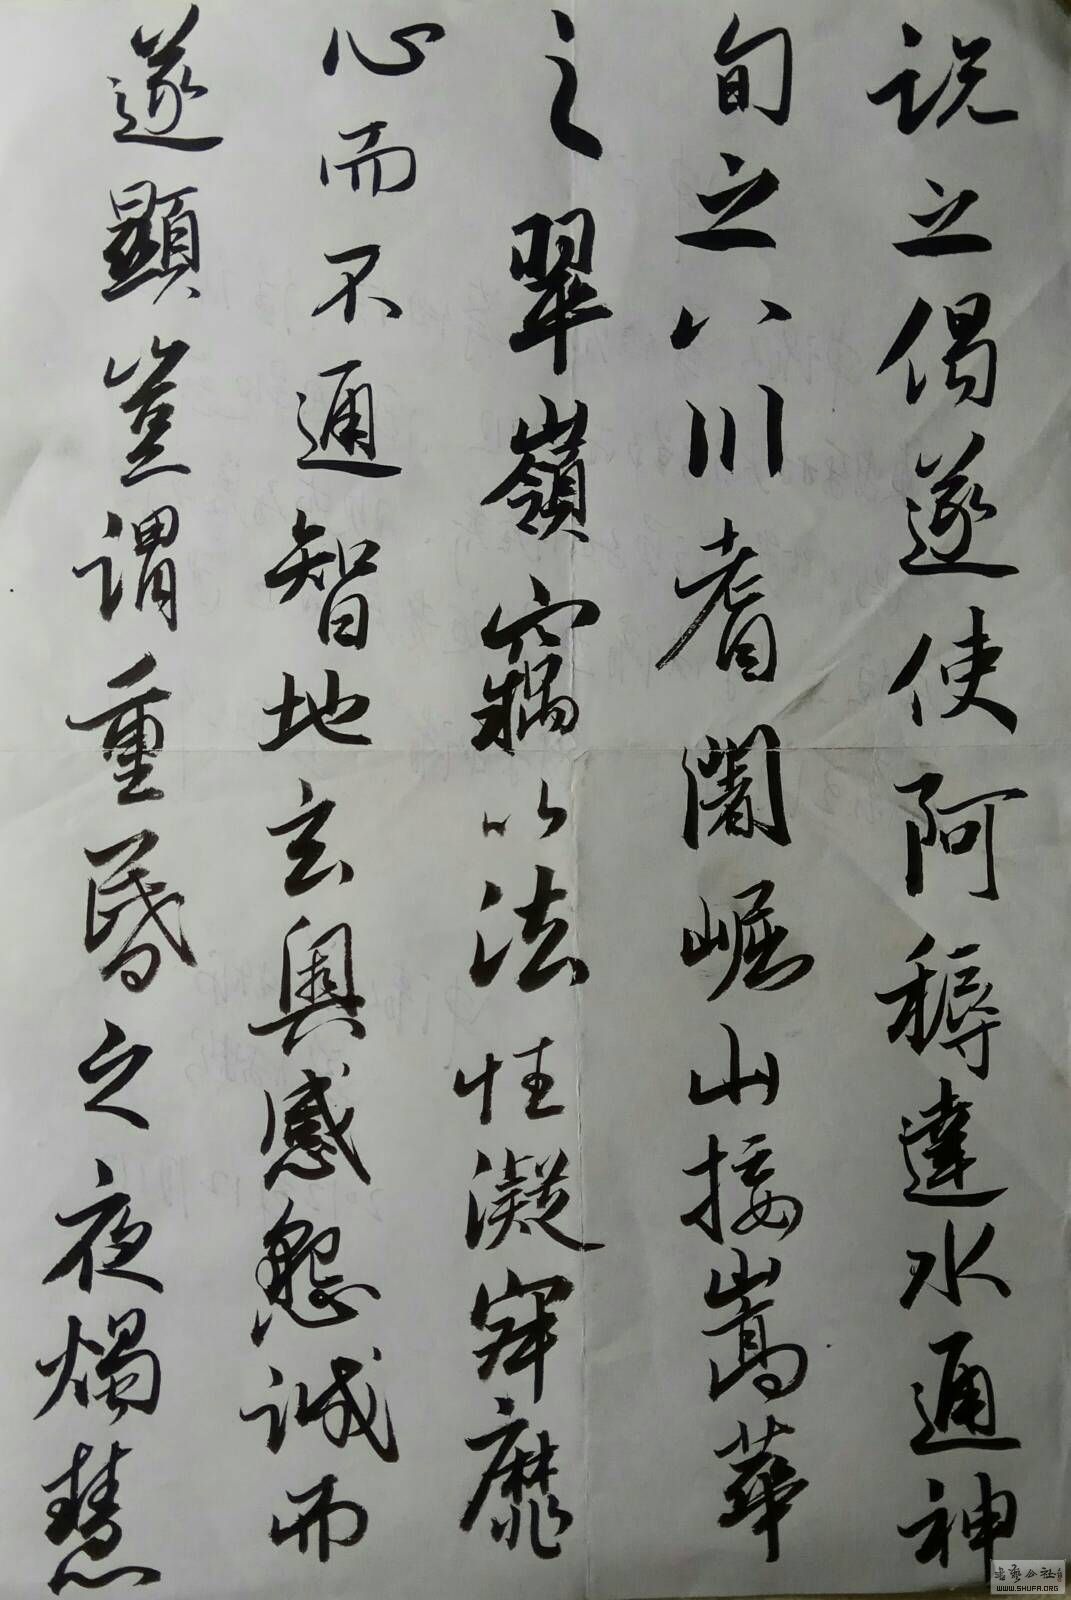 说之偈遂使阿耨達水通神
旬之八川耆闍崛山接嵩華
之翠嶺竊以法性凝寂靡
心而不通智地玄奧感懇誠而
遂顯豈谓重昏之夜燭慧
WWW.SHUFA.ORG